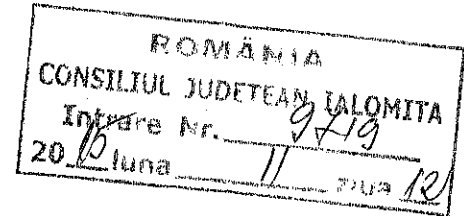 ROMÂNIA
CONSILIUL JUDETEAN IALOMITA
Intrare Nr. 9719
2015 luna 11 ziua 12